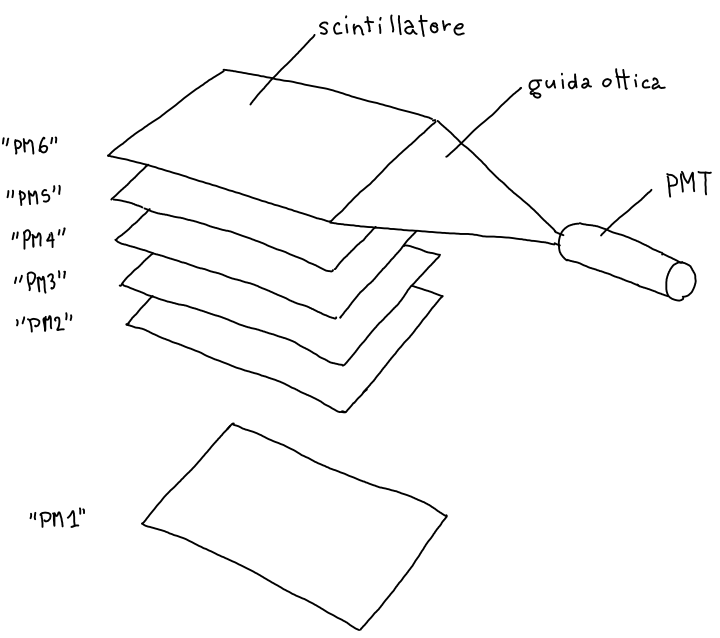 scintillatore
guida ottica
"PM6"
PMT
"PM5"
"PM4"
"PM3"
"PM2"
"PM1"